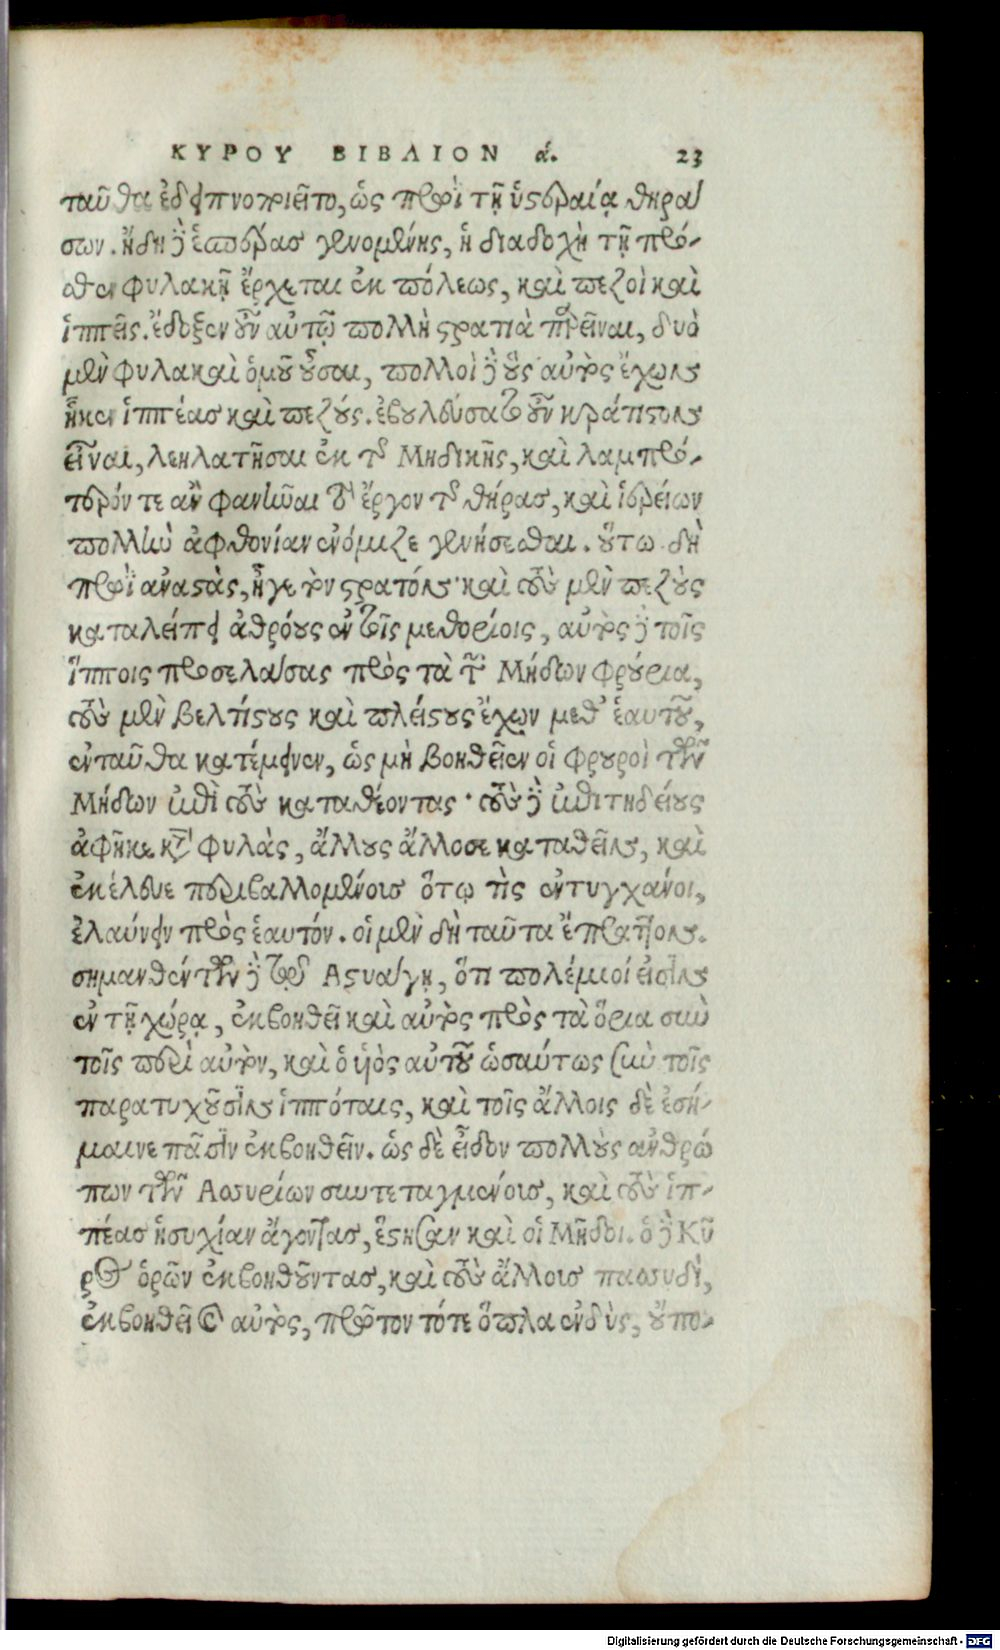 ΚΥΡΟΥ ΒΙΒΛΙΟΝ ά. 23
ταῦθα ἐδειπνοποιεῖτο, ὡς πρωῒ τῇ ὑστεραίᾳ θηρά
σων. ἤδη δὲ ἑσπέρας γενομένης, ἡ διαδοχὴ τῇ πρό-
σθεν φυλακῇ ἔρχεται ἐκ πόλεως, καὶ πεζοὶ καὶ
ἱππεῖς. ἔδοξεν οὖν αὐτῷ πολλὴ στρατιὰ παρεῖναι, δυὸ
μὲν φυλακαὶ ὁμοῦ οὖσαι, πολλοὶ δὲ οὓς αὐτὸς ἔχων
ἧκεν ἱππέας καὶ πεζούς. ἐβουλεύσατο οὖν κράτιστον
εἶναι, λεηλατῆσαι ἐκ τῆς Μηδικῆς, καὶ λαμπρό-
τερόν τε ἂν φανῆναι τὸ ἔργον τῆς θήρας, καὶ ἱερείων
πολλὴν ἀφθονίαν ἐνόμιζε γενήσεσθαι. οὕτω δὴ
πρωῒ ἀναστὰς, ἦγε τὸν στρατόν· καὶ τοὺς μὲν πεζοὺς
καταλείπει ἀθρόους ἐν τοῖς μεθορίοις, αὐτὸς δὲ τοῖς
ἵπποις προσελάσας πρὸς τὰ τῶν Μήδων φρούρια,
τοὺς μὲν βελτίστους καὶ πλείστους ἔχων μεθ' ἑαυτοῦ,
ἐνταῦθα κατέμεινεν, ὡς μὴ βοηθεῖεν οἱ φρουροὶ τῶν
Μήδων ἐπὶ τοὺς καταθέοντας· τοὺς δὲ ἐπιτηδείους
ἀφῆκε κατὰ φυλὰς, ἄλλους ἄλλοσε καταθεῖν, καὶ
ἐκέλευε περιβαλλομένοις ὅτῳ τὶς ἐντυγχάνοι,
ἐλαύνειν πρὸς ἑαυτόν. οἱ μὲν δὴ ταῦτα ἔπραττον.
σημανθέντων δὲ τῷ Ἀστυάγῃ, ὅτι πολέμιοί εἰσιν
ἐν τῇ χώρᾳ, ἐκβοηθεῖ καὶ αὐτὸς πρὸς τὰ ὅρια σὺν
τοῖς περὶ αὐτὸν, καὶ ὁ ὑιὸς αὐτοῦ ὡσαύτως σὺν τοῖς
παρατυχοῦσιν ἱππόταις, καὶ τοῖς ἄλλοις δὲ ἐσή-
μαινε πᾶσιν ἐκβοηθεῖν. ὡς δὲ εἶδον πολλοὺς ἀνθρώ
πων τῶν Ἀσσυρίων συντεταγμένοις, καὶ τοὺς ἱπ-
πέας ἡσυχίαν ἄγοντας, ἔστησαν καὶ οἱ Μῆδοι. ὁ δὲ Κῦ
ρος ὁρῶν ἐκβοηθοῦντας, καὶ τοὺς ἄλλοις πασσυδὶ,
ἐκβοηθεῖ καὶ αὐτὸς, πρῶτον τότε ὅπλα ἐνδὺς, οὔπο-
Digitalisierung gefördert durch die Deutsche Forschungsgemeinschaft - DFG